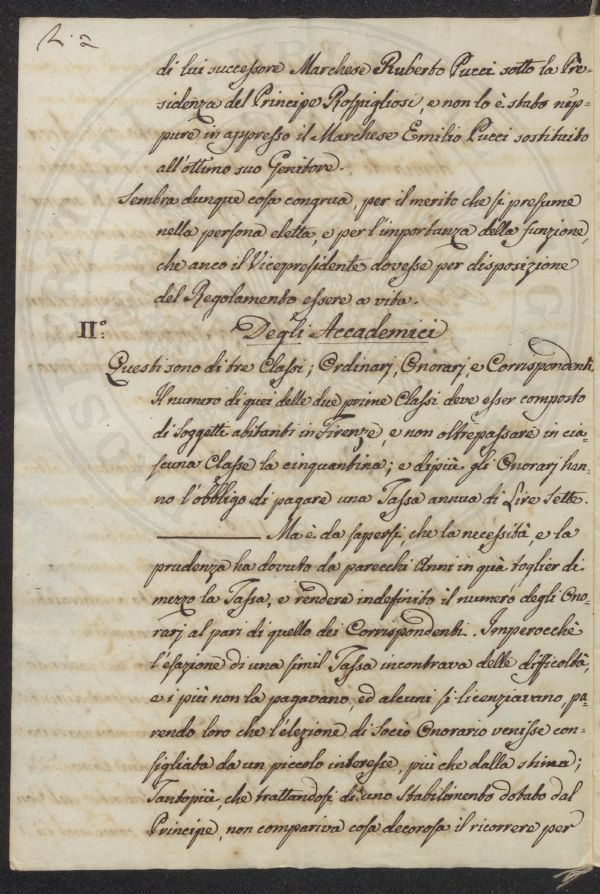 di lui successore Marchese Ruberto Pucci sotto la Pre=
sidenza del Principe Rospigliosi, e non lo è stato nep=
pure in appresso il Marchese Emilio Pucci sostituito
all'ottimo suo Genitore.
Sembra dunque cosa congrua, per il merito che si presume
nella persona eletta, e per l'importanza della funzione,
che anco il Vicepresidente dovesse per disposizione
del Regolamento essere a vita.
II.° Degli Accademici
Questi sono di tre Classi; Ordinarj, Onorarj e Corrispondenti.
Il numero di quei delle due prime Classi deve esser composto
di Soggetti abitanti in Firenze, e non oltrepassare in cia=
scuna Classe la cinquantina; e dipiù gli Onorarj han=
no l'obbligo di pagare una Tassa annua di Lire Sette.
Ma è da sapersi, che la necessità, e la
prudenza ha dovuto da parecchi Anni in quà toglier di
mezzo la Tassa, e rendere indefinito il numero degli Ono=
rarj al pari di quello dei Corrispondenti. Imperocchè
l'esazione di una simil Tassa incontrava delle difficoltà,
e i più non la pagavano, ed alcuni si licenziavano, pa=
rendo loro che l'elezione di Socio Onorario venisse con=
sigliata da un piccolo interesse, più che dalla stima;
Tantopiù, che trattandosi di uno Stabilimento dotato dal
Principe, non compariva cosa decorosa il ricorrere per